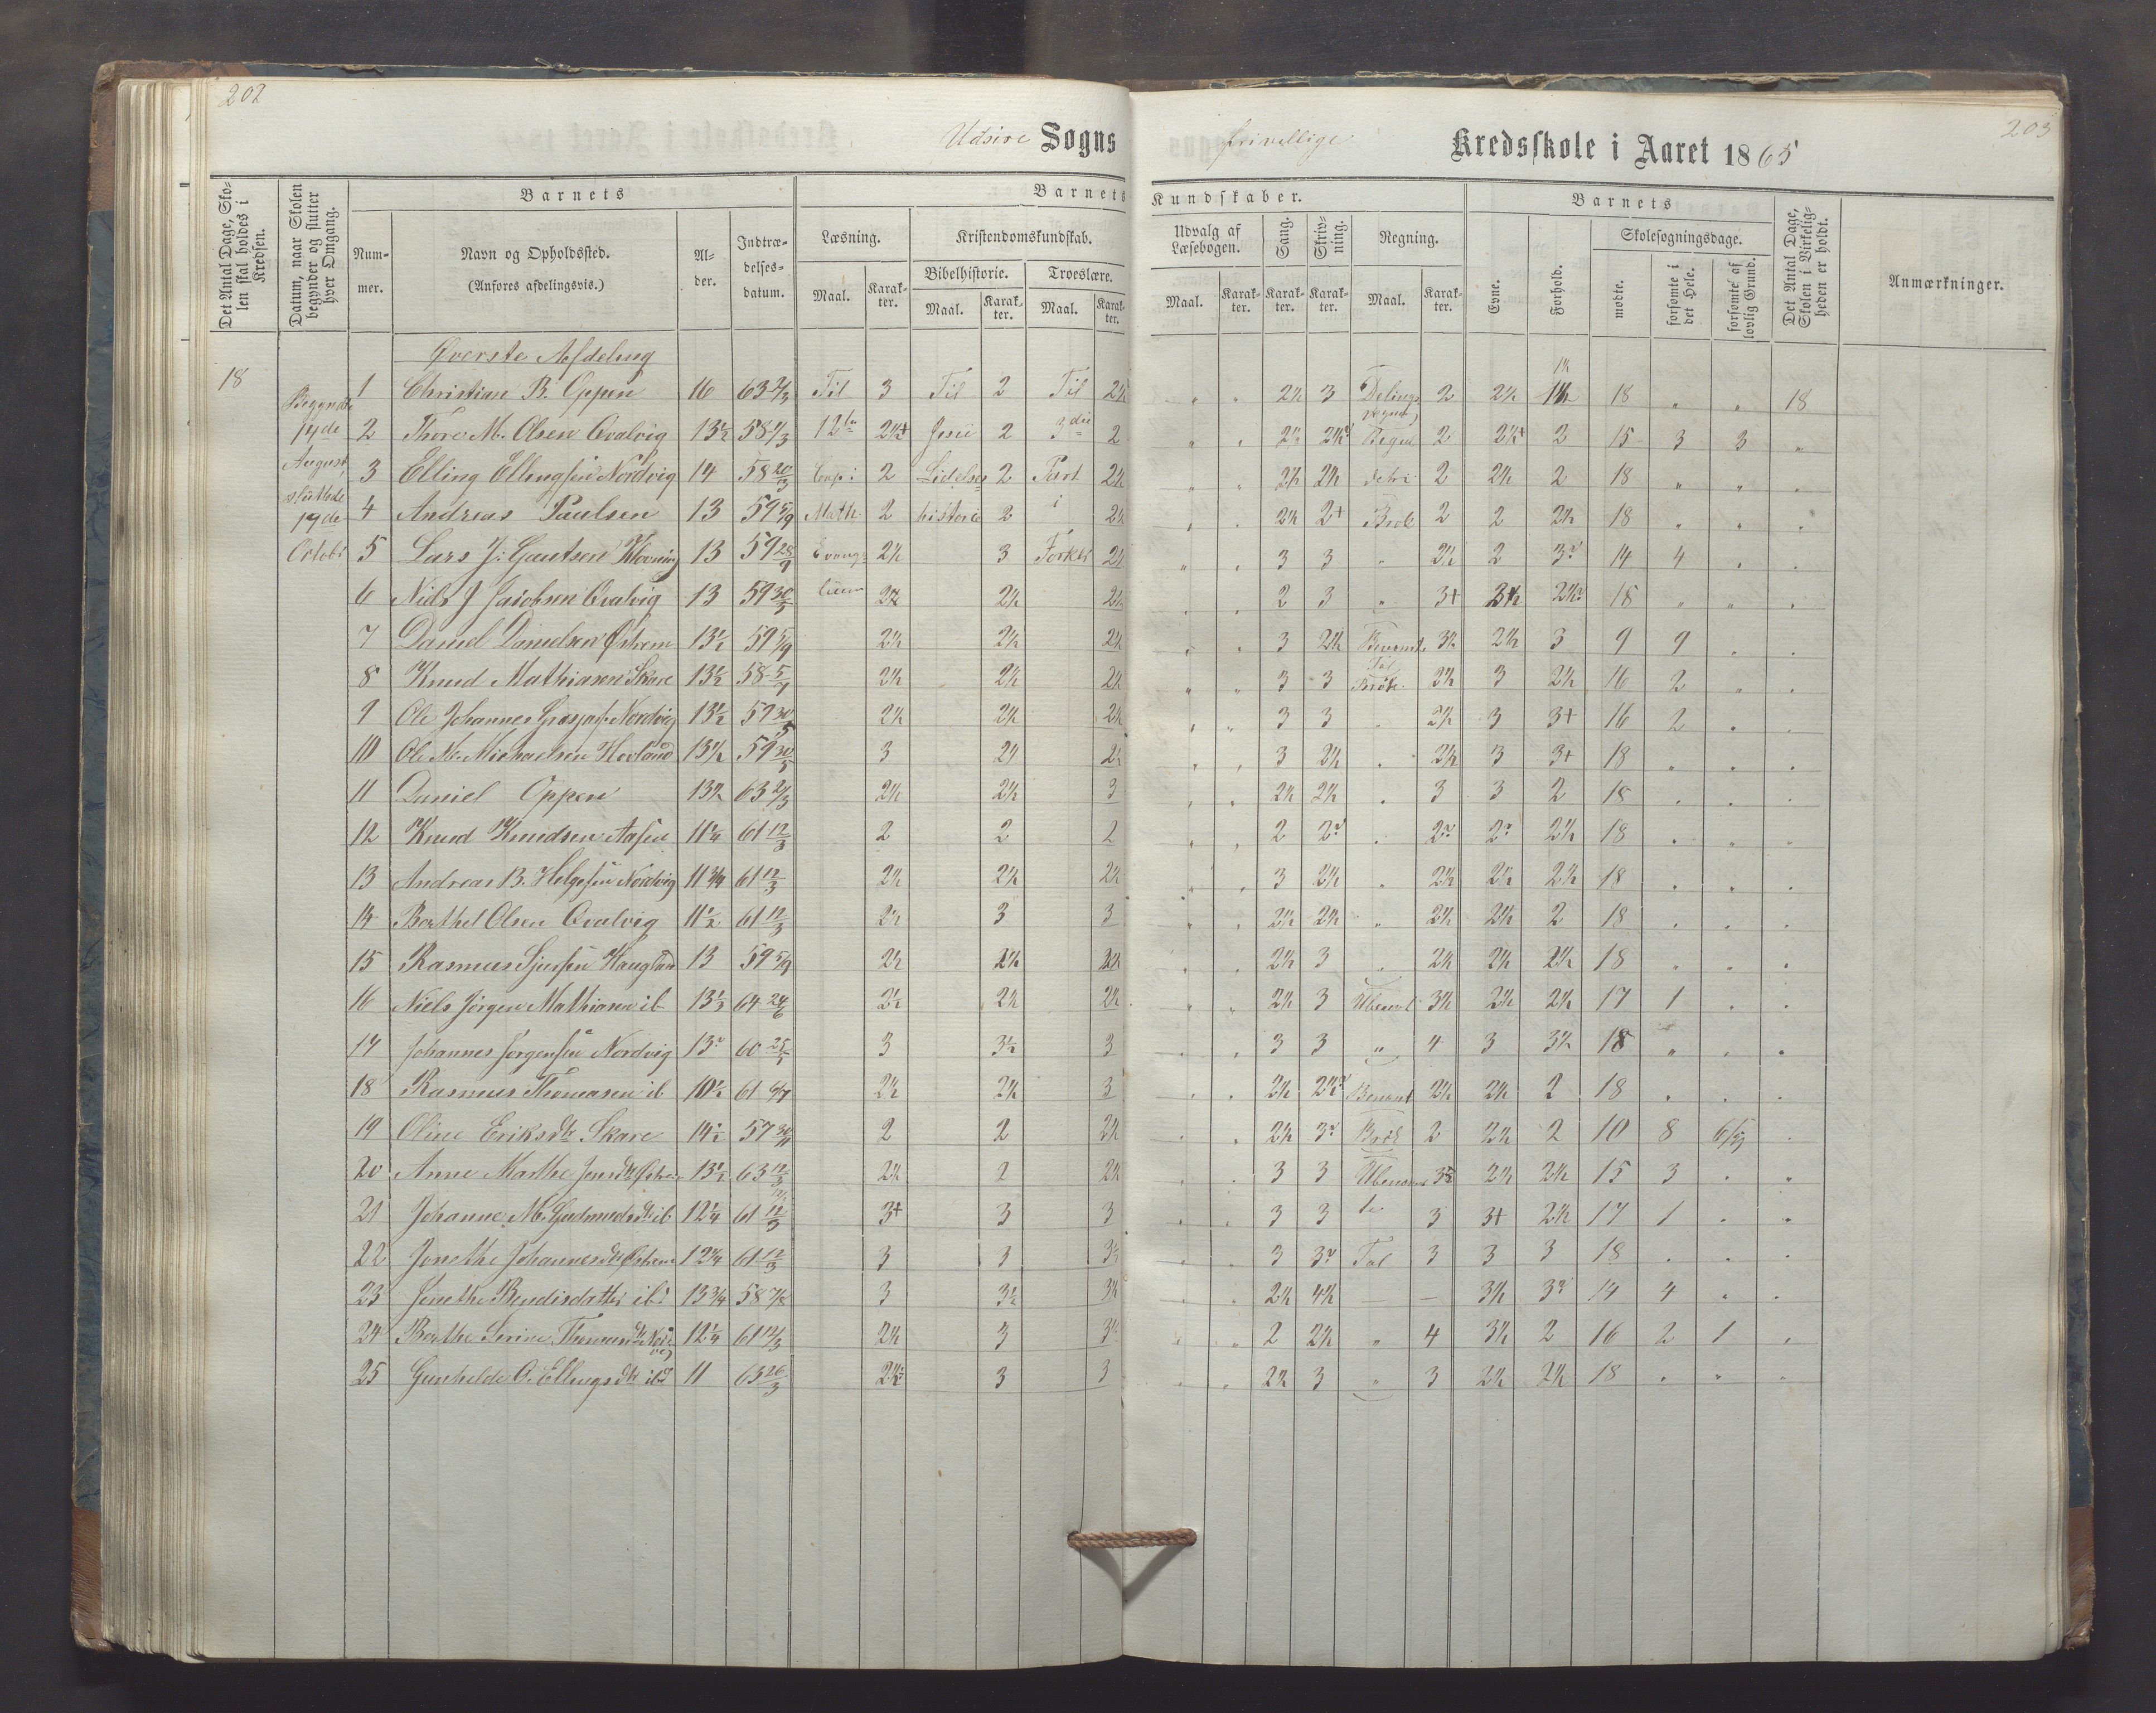 202
203
Udsire Sogns frivillige Kredsskole i Aaret 1865
Det Antal Dage, Skolen skal holdes i Kredsen.
Datum, naar Skolen begynder og slutter hver Omgang.
Barnets
Nummer.
Navn og Opholdssted.
(Anføres afdelingsvis.)
Alder.
Indtrædelsesdatum.
Barnets Kundskaber.
Læsning.
Maal.
Karakter.
Kristendomskundskab.
Bibelhistorie.
Maal.
Karakter.
Troeslære.
Maal.
Karakter.
Udvalg af Læsebogen.
Maal.
Karakter.
Sang.
Karakter.
Skrivning.
Karakter.
Regning.
Maal.
Karakter.
Barnets
Evne.
Forhold.
Skolesøgningsdage.
mødte.
forsømte i det Hele.
forsømte af lovlig Grund.
Det Antal Dage, Skolen i Virkeligheden er holdt.
Anmærkninger.
Øverste Afdeling
18
Begyndte
14de
August,
sluttede
19de
Octobr
1 Christian B. Oppen 16 63 2/3 Til 3 Til 2 Til 2½ " " 2½ 3 Delings 2 2½ 1½ 18 " " 18
2 Thore M. Olsen Qvalvig 13½ 12te 2½+ Jesu 2 3die 2 " " 2½ Regul 2 2½+ 2 15 3 3 "
3 Elling Ellingsen Nordvig 14 58 20/3 Cap: 2 Lidelses 2 Part 2½ " " 2½ 2½ 2 2½ 2 18 " " "
4 Andreas Paulsen 13 59 5/9 Math 2 historie 2 i 2½ " " 2½ 2+ Brøk 2 2 2½ 18 " " "
5 Lars J. Gautsen Klovning 13 59 28/9 Evange 2½ 3 Forkl: 2½ " " 3 3 " 2½ 2 14 4 " "
6 Niels J Jacobsen Qvalvig 13 59 30/5 lium 2½ 2½ 2½ " " 2 3 " 3+ 2½ 18 " " "
7 Daniel Danielsen Østrem 13½ 59 5/9 2½ 2½ 2½ " " 3 2½ Benævnt 3½ 2½ 3 9 9 " "
8 Knud Mathiasen Skare 13½ 2½ 2½ 2½ " " 3 3 Brøk 2½ 3 2½ 16 2 " "
9 Ole Johannes Nordvig 13½ 59 30/5 2½ 2½ 2½ " " 3 3 " 2½ 3 3+ 16 2 " "
10 Ole M. Michaelsen Hovland 13½ 59 30/5 3 2½ " " 3 2½ " 2½ 3 3+ 18 " " "
11 Daniel Oppen 13½ 63 2/3 2½ 2½ 3 " " 2½ 2½ " 3 3 2 18 " " "
12 Knud Knudsen Aasen 11¼ 61 12/3 2 2 2 " " 2 " 2½ 18 " " "
13 Andreas B. Helgesen Nordvig 11¾ 61 12/3 2½ 2½ 2½ " " 3 2½ " 2½ 2½ 2½ 18 " " "
14 Berthel Olsen Qvalvig 11½ 61 12/3 2½ 3 3 " " 2½ 2½ " 2½ 2½ 2 18 " " "
15 Rasmus Sjursen Haugland 13 59 5/9 2½ 2½ 2½ " " 2½ 3 " 2½ 2½ 2½ 18 " " "
16 Niels Jørgen Mathiasen ib 13½ 64 24/6 2½ 2½ 2½ " " 2½ 3 Ubenævnt 3½ 2½ 2½ 17 1 " "
17 Johannes Jørgensen Nordvig 3 3½ 3 " " 3 3 " 4 3 3½ 18 " " "
18 Rasmus Thomasen ib 10½ 2½ 2½ 3 " " 2½ Benævnt 2½ 2½ 2 18 " " "
19 Oline Eriksdtr Skare 14½ 2 2 2½ " " 2½ Brøk 2 2½ 2 10 8 "
20 Anne Marthe 13½ 63 12/3 2½ 2 2½ " " 3 3 2½ 2½ 15 3 " "
21 Johanne M. Gudmundsdtr ib 12¼ 61 12/3 3+ 3 3 " " 3 3 te 3 3+ 2½ 17 1 " "
22 Jonethe Johannesdtr Østrem 12¼ 61 12/3 3 3 3½ " " 3 Tal 3 3 3 18 " " "
23 Jonethe Bendixdatter ib: 13¾ 58 7/8 3 3½ 3½ " " 2½ 4½ — 3½ 14 4 " "
24 Berthe Serine Thomasdtr Nordvig 12¼ 61 12/3 2½ 3 3½ " " 2 2½ " 4 3½ 2 16 2 1 "
25 Gunhilde O. Ellingsdtr ibd 11 63 26/3 3 3 " " 2½ 3 " 3 2½ 2½ 18 " " "